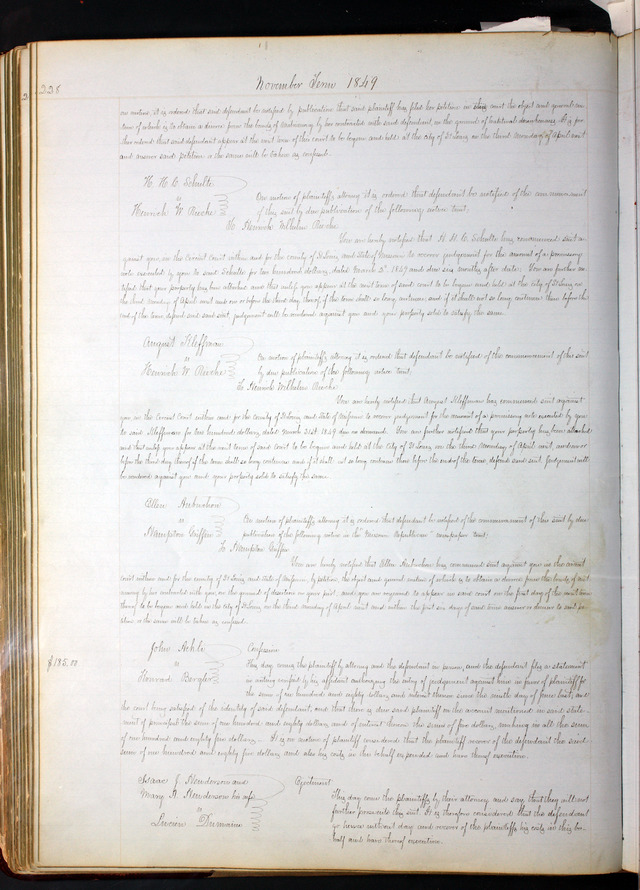 228
November Term 1849
on motion, it is ordered that said defendant be notified by publication that said plaintiff has filed her petition in this court the object and general na-
ture of which is to obtain a decree from the bonds of matrimony by her contracted with said defendant on the ground of habitual drunkenness. It is fur-
ther ordered that said defendant appear at the next term of this court to be begun and held at the City of St Louis on the third Monday of April next
and answer said petition or the same will be taken as confessed.
H. H. C. Schulte
vs
Heinrich W.
On motion of plaintiffs attorney it is ordered that defendant be notified of the commencement
of this suit by due publication of the following notice, to wit:
To Heinrich Wilhelm
You are hereby notified that H. H. C. Schulte has commenced suit a-
gainst you in the Circuit Court within and for the county of St Louis and State of Missouri to recover judgement for the amount of a promissory
note executed by you to said Schulte for two hundred dollars, dated March 3d 1849 and due six months after date. You are further no-
tified that your property has been attached and that unless you appear at the next term of said court to be begun and held at the city of St Louis on
the third Monday of April next and on or before the third day thereof if the term shall so long continue and if it shall not so long continue then before the
end of the term defend said suit, judgement will be rendered against you and your property sold to satisfy the same.
August Kleffman
vs
Heinrich W.
On motion of plaintiffs attorney it is ordered that defendant be notified of the commencement of this suit
by due publication of the following notice to wit:
To Heinrich Wilhelm
You are hereby notified that August Kleffman has commenced suit against
you in the Circuit Court within and for the county of St Louis and State of Missouri to recover judgement for the amount of a promissory note executed by you
to said Kleffman for two hundred dollars, dated March 31st 1849 due on demand. You are further notified that your property has been attached
and that unless you appear at the next term of said Court to be begun and held at the City of St Louis on the third Monday of April next, and on or
before the third day thereof if the term shall so long continue and if it shall not so long continue then before the end of the term, defend said suit judgement will
be rendered against you and your property sold to satisfy the same.
Ellen Aubuchon
vs
Hampton Giffin
On motion of plaintiffs attorney it is ordered that defendant be notified of the commencement of this suit by due
publication of the following notice in the "Missouri Republican" newspaper to wit:
To Hampton Giffin
You are hereby notified that Ellen Aubuchon has commenced suit against you in the circuit
court within and for the county of St Louis and State of Missouri by petition, the object and general nature of which is to obtain a divorce from the bonds of matri-
mony by her contracted with you on the ground of desertion on your part, and you are required to appear in said court on the first day of the next term
thereof to be begun and held in the City of St Louis on the third Monday of April next and within the first six days of said term answer or demur to said pe-
tition or the same will be taken as confessed.
$185.00
John
vs
Conrad Bergler
Confession
This day comes the plaintiff by attorney and the defendant in person, and the defendant files a statement
in writing verified by his affidavit authorizing the entry of judgement against him in favor of plaintiff for
the sum of one hundred and eighty dollars and interest thereon since the ninth day of June last, and
the court being satisfied of the identity of said defendant, and that there is due said plaintiff on the account mentioned in said state-
ment of principal the sum of one hundred and eighty dollars, and of interest thereon the sum of five dollars, making in all the sum
of one hundred and eighty five dollars. It is on motion of plaintiff considered that the plaintiff recover of the defendant the said
sum of one hundred and eighty five dollars and also his costs in this behalf expended and have thereof execution.
Isaac J. Henderson and
Mary A Henderson his wife
vs
Lucien Dumaine
Ejectment
This day come the plaintiffs by their attorney and say that they will not
further prosecute this suit. It is therefore considered that the defendant
go hence without day and recover of the plaintiffs his costs in this be-
half and have thereof execution.